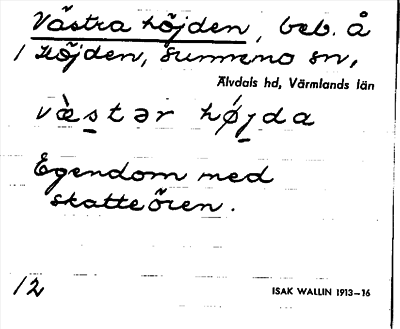 Västra höjden, beb. å
1 Höjden, Sunnemo sn,
Älvdals hd, Värmlands län
væ̀stər hǿjda
Egendom med
skatteören.
12
ISAK WALLIN 1913–16